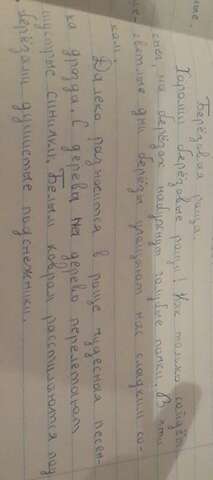 ние,
Берёзовая роща.
Хороши берёзовые рощи! Как только сойдёт
снег, на берёзах набухнут голубые почки. В эти
светлые дни берёзы угощают нас сладким со-
ком.
Далеко разносится в роще чудесная песен-
ка дрозда. С дерева на дерево перелетают
шустрые синички. Белым ковром расстилаются под
берёзами душистые подснежники.